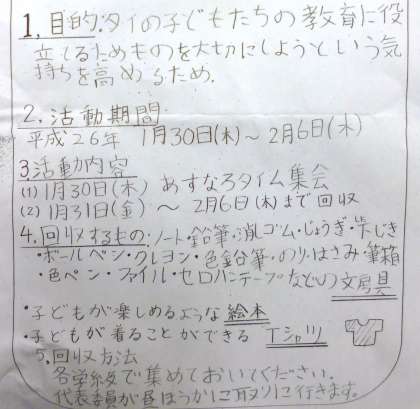 1.目的.タイの子どもたちの教育に役
立てるためものを大切にしようという気
持ちを高めるため.
2.活動期間
平成26年 1月30日(木)〜2月6日(木)
3活動内容
(1)1月30日(木) あすなろタイム集会
(2)1月31日(金) 〜2月6日(木)まで回収
4.回収するもの・ノート・鉛筆・消しゴム・じょうぎ・下じき
・ボールペン・クレヨン・色鉛筆・のり・はさみ・筆箱
・色ペン・ファイル・セロハンテープなどの文房具
・子どもが楽しめるような絵本
・子どもが着ることができる Tシャツ
5.回収方法
各学級で集めておいてください。
代表委員が昼ほうかに取りに行きます。